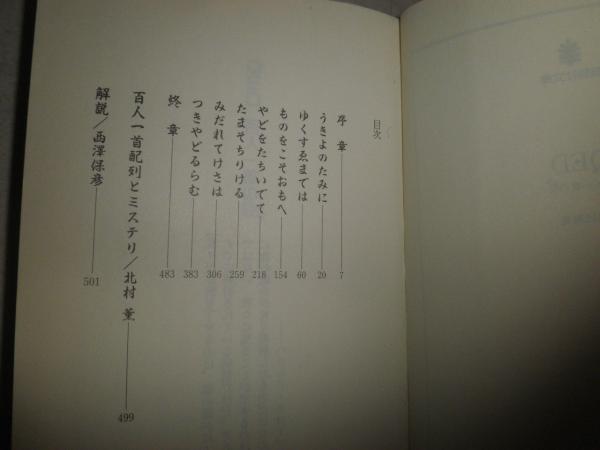 QED
目次
序章 7
うきよのたみに 20
ゆくすゑまでは 60
ものをこそおもへ 154
やどをたちいでて 218
たまそちりける 259
みだれてけさは 306
つきやどるらむ 383
終章 483
百人一首配列とミステリ／北村 薫 499
解説／西澤保彦 501